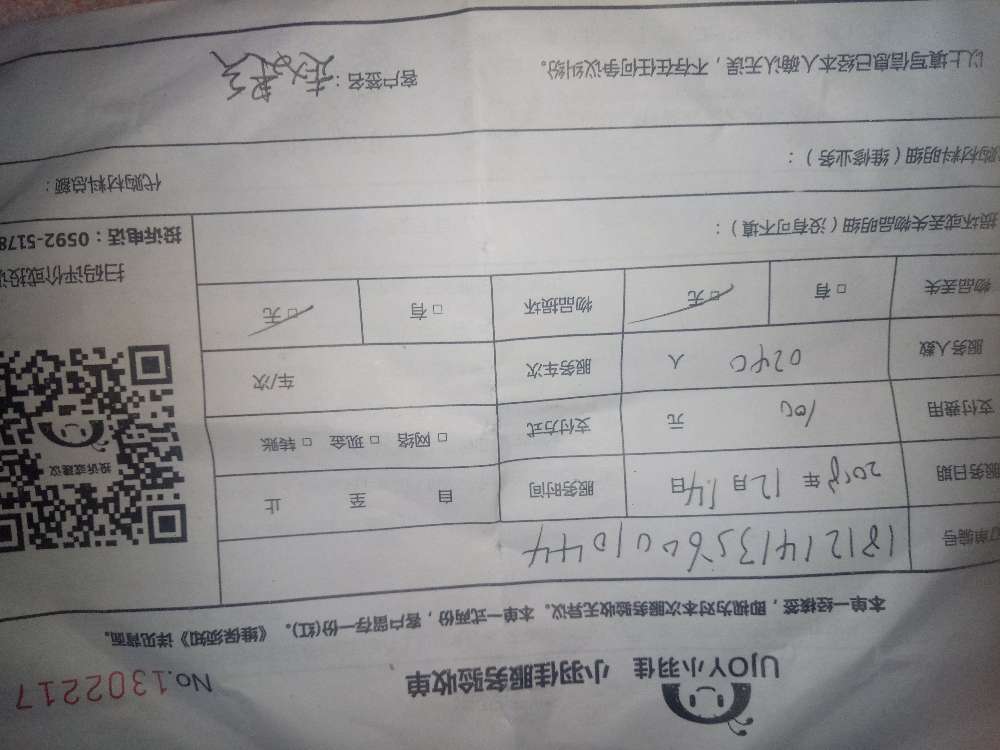 UJOY小羽佳 小羽佳服务验收单 No.1302217
本单一经接签，即视为对本次服务验收无异议。本单一式两份，客户留存一份(红)。《维保须知》详见背面。
单编号 1812141356001044
服务日期 2018年12月14日 服务时间 自 至 止
支付费用 100 元 支付方式 □ 网络 □ 现金 □ 转账
服务人数 0240 人 服务车次 车/次
物品丢失 □ 有 □ 无 物品损坏 □ 有 □ 无
投诉或建议
扫码评价或投诉
投诉电话：0592-5178
损坏或丢失物品明细（没有可不填）：
购材料明细（维修业务）： 代购材料总额：
以上填写信息已经本人确认无误，不存在任何争议纠纷。 客户签名：